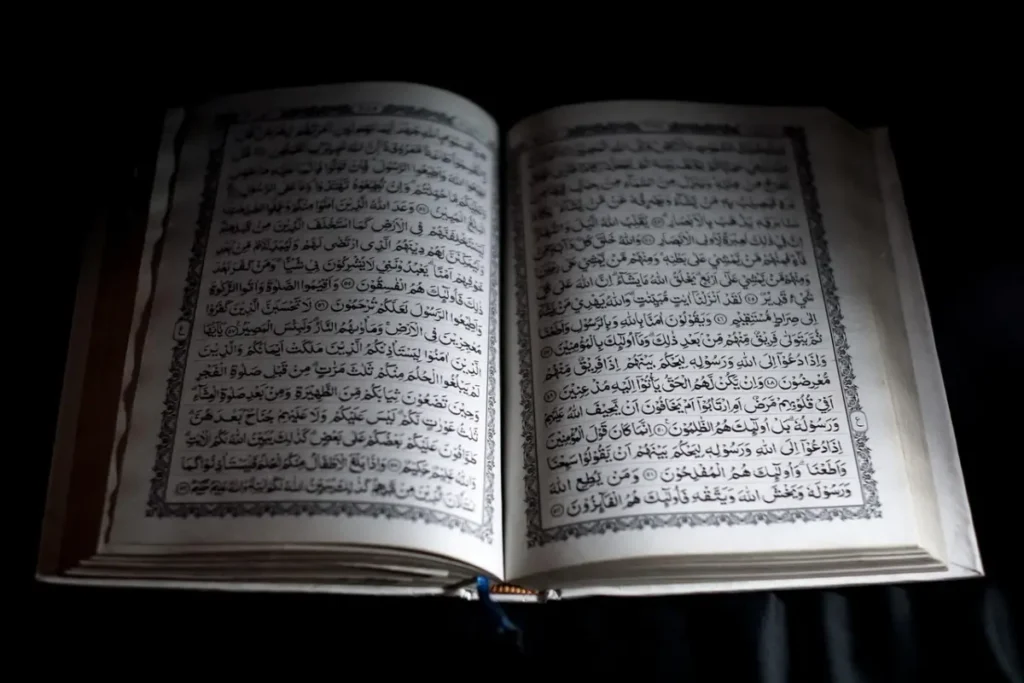 بَرَدٍ فَيُصِيبُ بِهٖ مَنْ يَّشَاءُ وَيَصْرِفُهٗ عَنْ مَّنْ يَّشَاءُ
سَنَا بَرْقِهٖ يَذْهَبُ بِالْاَبْصَارِ ۝٤٣ يُقَلِّبُ اللّٰهُ الَّيْلَ وَالنَّهَارَ
اِنَّ فِيْ ذٰلِكَ لَعِبْرَةً لِّاُولِى الْاَبْصَارِ ۝٤٤ وَاللّٰهُ خَلَقَ كُلَّ دَابَّةٍ مِّنْ
فَمِنْهُمْ مَّنْ يَّمْشِيْ عَلٰى بَطْنِهٖ وَمِنْهُمْ مَّنْ يَّمْشِيْ عَلٰى رِجْلَيْنِ
وَمِنْهُمْ مَّنْ يَّمْشِيْ عَلٰى اَرْبَعٍ يَخْلُقُ اللّٰهُ مَا يَشَاءُ اِنَّ اللّٰهَ عَلٰى كُلِّ
شَيْءٍ قَدِيْرٌ ۝٤٥ لَقَدْ اَنْزَلْنَا اٰيٰتٍ مُّبَيِّنٰتٍ وَاللّٰهُ يَهْدِيْ مَنْ يَّشَاءُ
اِلٰى صِرَاطٍ مُّسْتَقِيْمٍ ۝٤٦ وَيَقُوْلُوْنَ اٰمَنَّا بِاللّٰهِ وَبِالرَّسُوْلِ وَاَطَعْنَا
ثُمَّ يَتَوَلّٰى فَرِيْقٌ مِّنْهُمْ مِّنْ بَعْدِ ذٰلِكَ وَمَا اُولٰٓئِكَ بِالْمُؤْمِنِيْنَ ۝٤٧
وَاِذَا دُعُوْٓا اِلَى اللّٰهِ وَرَسُوْلِهٖ لِيَحْكُمَ بَيْنَهُمْ اِذَا فَرِيْقٌ مِّنْهُمْ
مُّعْرِضُوْنَ ۝٤٨ وَاِنْ يَّكُنْ لَّهُمُ الْحَقُّ يَأْتُوْٓا اِلَيْهِ مُذْعِنِيْنَ ۝٤٩
اَفِيْ قُلُوْبِهِمْ مَّرَضٌ اَمِ ارْتَابُوْٓا اَمْ يَخَافُوْنَ اَنْ يَّحِيْفَ اللّٰهُ عَلَيْهِمْ
وَرَسُوْلُهٗ بَلْ اُولٰٓئِكَ هُمُ الظّٰلِمُوْنَ ۝٥٠ اِنَّمَا كَانَ قَوْلَ الْمُؤْمِنِيْنَ
اِذَا دُعُوْٓا اِلَى اللّٰهِ وَرَسُوْلِهٖ لِيَحْكُمَ بَيْنَهُمْ اَنْ يَّقُوْلُوْا سَمِعْنَا
وَاَطَعْنَا وَاُولٰٓئِكَ هُمُ الْمُفْلِحُوْنَ ۝٥١ وَمَنْ يُّطِعِ اللّٰهَ
وَرَسُوْلَهٗ وَيَخْشَ اللّٰهَ وَيَتَّقْهِ فَاُولٰٓئِكَ هُمُ الْفَآئِزُوْنَ ۝٥٢
ع
اللّٰهَ وَاَطِيْعُوا الرَّسُوْلَ فَاِنْ تَوَلَّوْا فَاِنَّمَا عَلَيْهِ مَا حُمِّلَ
وَعَلَيْكُمْ مَّا حُمِّلْتُمْ وَاِنْ تُطِيْعُوْهُ تَهْتَدُوْا وَمَا عَلَى الرَّسُوْلِ اِلَّا
الْبَلٰغُ الْمُبِيْنُ ۝٥٤ وَعَدَ اللّٰهُ الَّذِيْنَ اٰمَنُوْا مِنْكُمْ وَعَمِلُوا الصّٰلِحٰتِ
لَيَسْتَخْلِفَنَّهُمْ فِى الْاَرْضِ كَمَا اسْتَخْلَفَ الَّذِيْنَ مِنْ قَبْلِهِمْ
وَلَيُمَكِّنَنَّ لَهُمْ دِيْنَهُمُ الَّذِى ارْتَضٰى لَهُمْ وَلَيُبَدِّلَنَّهُمْ مِّنْ بَعْدِ
خَوْفِهِمْ اَمْنًا يَعْبُدُوْنَنِيْ لَا يُشْرِكُوْنَ بِيْ شَيْئًا وَمَنْ كَفَرَ بَعْدَ
ذٰلِكَ فَاُولٰٓئِكَ هُمُ الْفٰسِقُوْنَ ۝٥٥ وَاَقِيْمُوا الصَّلٰوةَ وَاٰتُوا الزَّكٰوةَ
وَاَطِيْعُوا الرَّسُوْلَ لَعَلَّكُمْ تُرْحَمُوْنَ ۝٥٦ لَا تَحْسَبَنَّ الَّذِيْنَ كَفَرُوْا
مُعْجِزِيْنَ فِى الْاَرْضِ وَمَأْوٰىهُمُ النَّارُ وَلَبِئْسَ الْمَصِيْرُ ۝٥٧ يٰٓاَيُّهَا
الَّذِيْنَ اٰمَنُوْا لِيَسْتَأْذِنْكُمُ الَّذِيْنَ مَلَكَتْ اَيْمَانُكُمْ وَالَّذِيْنَ
لَمْ يَبْلُغُوا الْحُلُمَ مِنْكُمْ ثَلٰثَ مَرّٰتٍ مِنْ قَبْلِ صَلٰوةِ الْفَجْرِ
وَحِيْنَ تَضَعُوْنَ ثِيَابَكُمْ مِّنَ الظَّهِيْرَةِ وَمِنْ بَعْدِ صَلٰوةِ الْعِشَاءِ
ثَلٰثُ عَوْرٰتٍ لَّكُمْ لَيْسَ عَلَيْكُمْ وَلَا عَلَيْهِمْ جُنَاحٌ بَعْدَهُنَّ
طَوّٰفُوْنَ عَلَيْكُمْ بَعْضُكُمْ عَلٰى بَعْضٍ كَذٰلِكَ يُبَيِّنُ اللّٰهُ لَكُمُ الْاٰيٰتِ
وَاللّٰهُ عَلِيْمٌ حَكِيْمٌ ۝٥٨ وَاِذَا بَلَغَ الْاَطْفَالُ مِنْكُمُ الْحُلُمَ فَلْيَسْتَأْذِنُوْا كَمَا
اسْتَأْذَنَ الَّذِيْنَ مِنْ قَبْلِهِمْ كَذٰلِكَ يُبَيِّنُ اللّٰهُ لَكُمْ اٰيٰتِهٖ وَاللّٰهُ عَلِيْمٌ حَكِيْمٌ ۝٥٩
ع